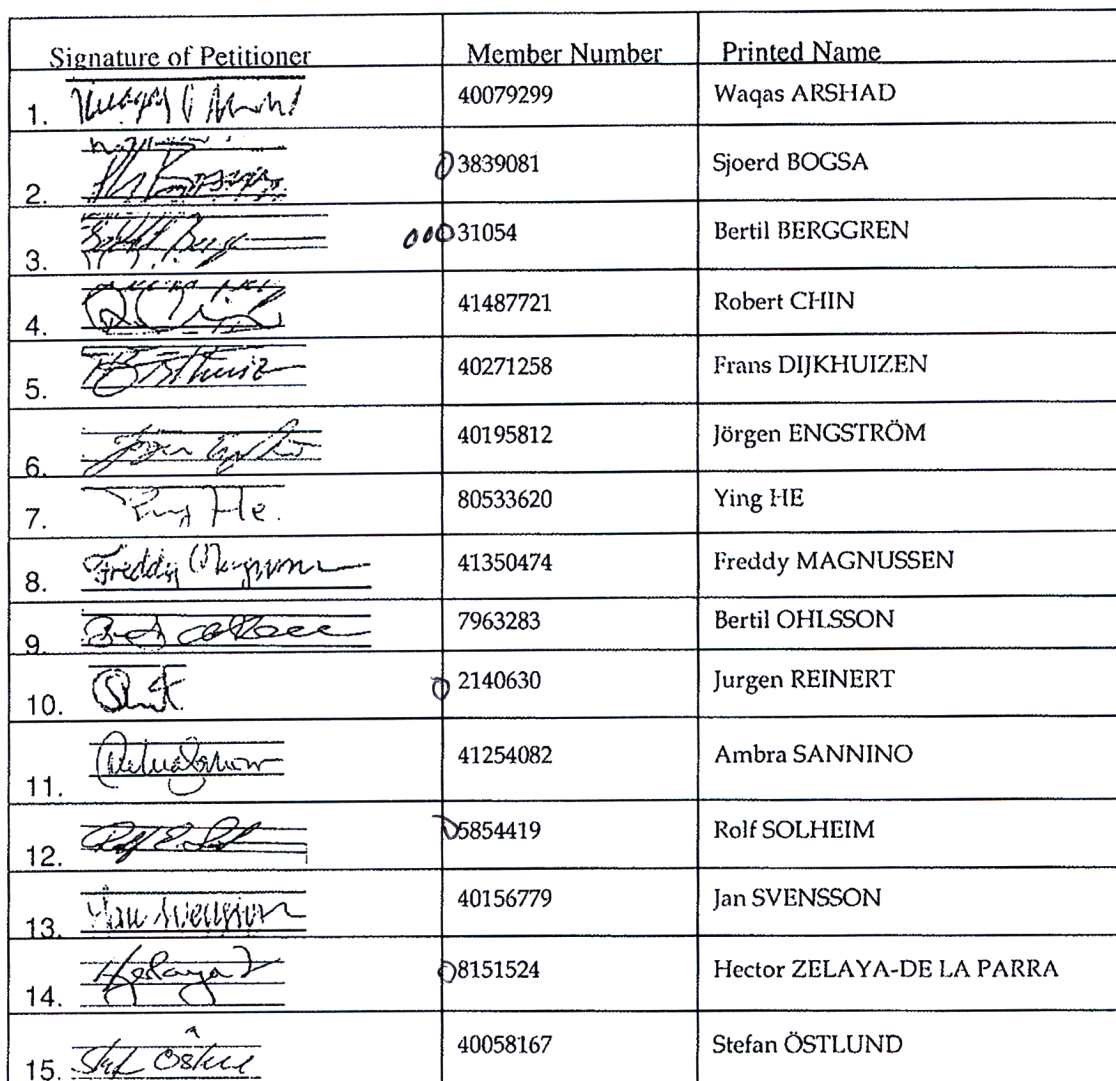 Signature of Petitioner Member Number Printed Name
1. 40079299 Waqas ARSHAD
2. 03839081 Sjoerd BOGSA
3. 00031054 Bertil BERGGREN
4. 41487721 Robert CHIN
5. 40271258 Frans DIJKHUIZEN
6. 40195812 Jörgen ENGSTRÖM
7. Ying He. 80533620 Ying HE
8. Freddy Magnussen 41350474 Freddy MAGNUSSEN
9. 7963283 Bertil OHLSSON
10. 02140630 Jurgen REINERT
11. 41254082 Ambra SANNINO
12. 05854419 Rolf SOLHEIM
13. Jan Svensson 40156779 Jan SVENSSON
14. 08151524 Hector ZELAYA-DE LA PARRA
15. 40058167 Stefan ÖSTLUND